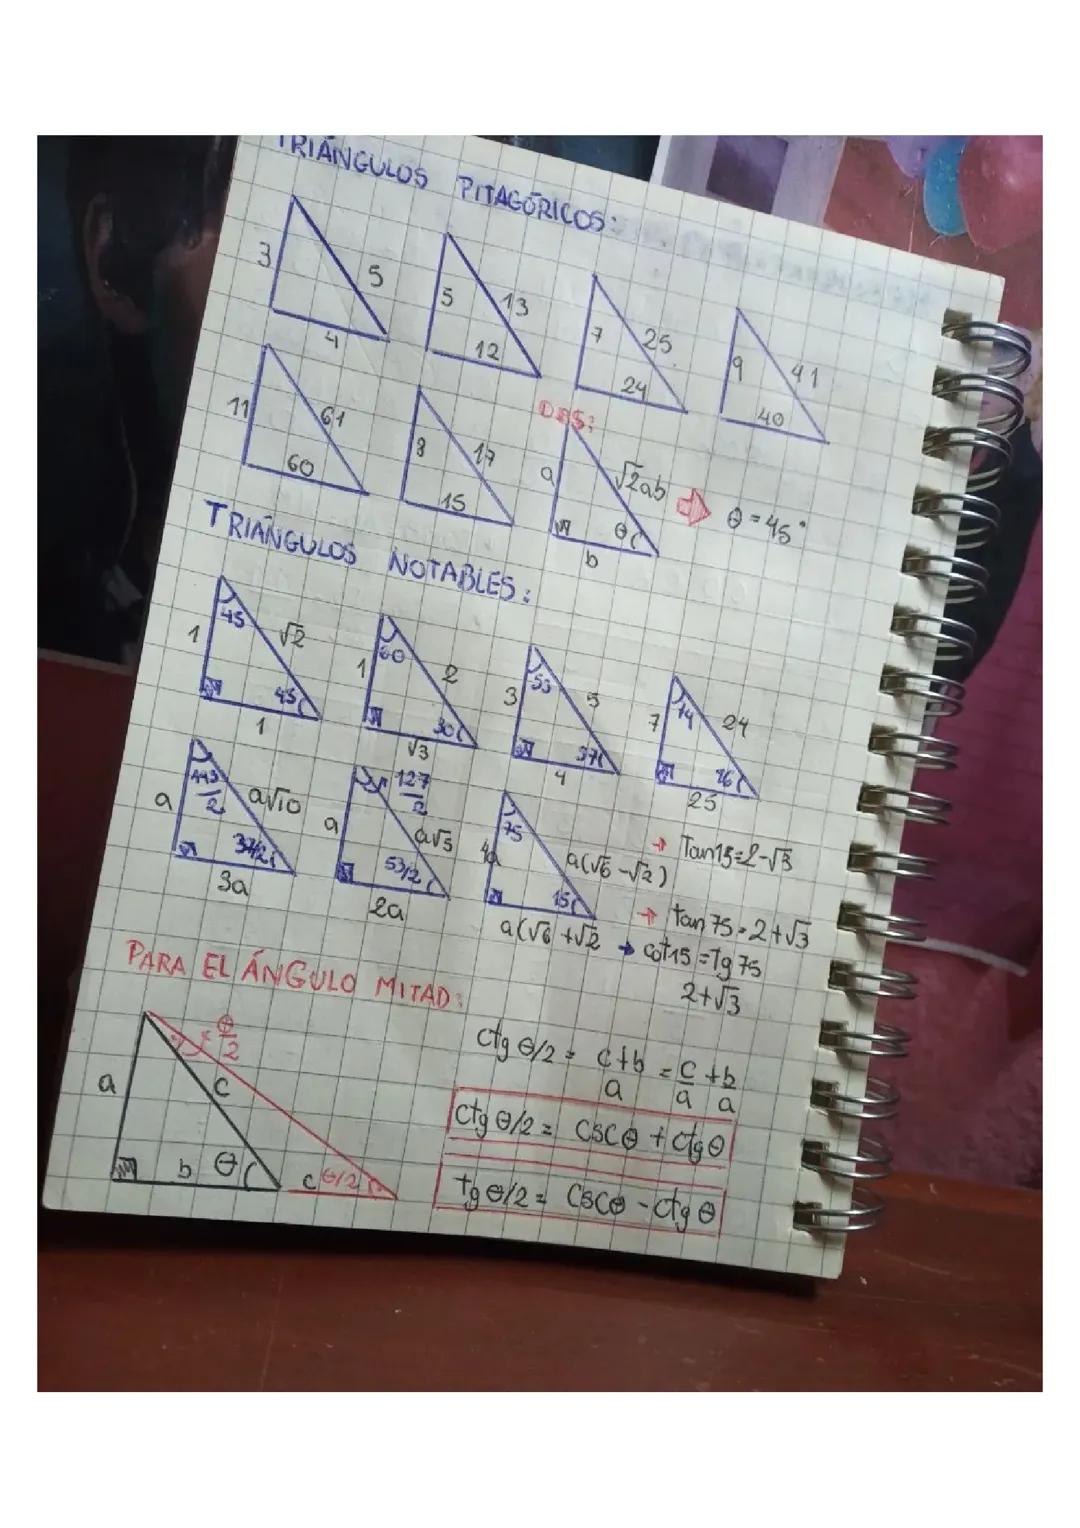 TRIÁNGULOS PITAGÓRICOS:
3 5 4
5 13 12
7 25 24
9 41 40
11 61 60
8 17 15
OBS:
a √2ab θ b
θ = 45°
TRIÁNGULOS NOTABLES:
1 45 √2 45 1
1 60 2 30 √3
3 53 5 37 4
7 74 24 16 25
a 143/2 a√10 37/2 3a
a 127/2 a√5 53/2 2a
4a 75 a(√6 -√2) 15 a(√6 +√2
→ Tan15=2-√3
→ tan 75=2+√3
→ cot15 =Tg 75
2+√3
PARA EL ÁNGULO MITAD:
a θ/2 c b θ c θ/2
ctg θ/2 = c+b/a = c/a + b/a
ctg θ/2 = cscθ + ctgθ
tg θ/2 = cscθ - ctgθ